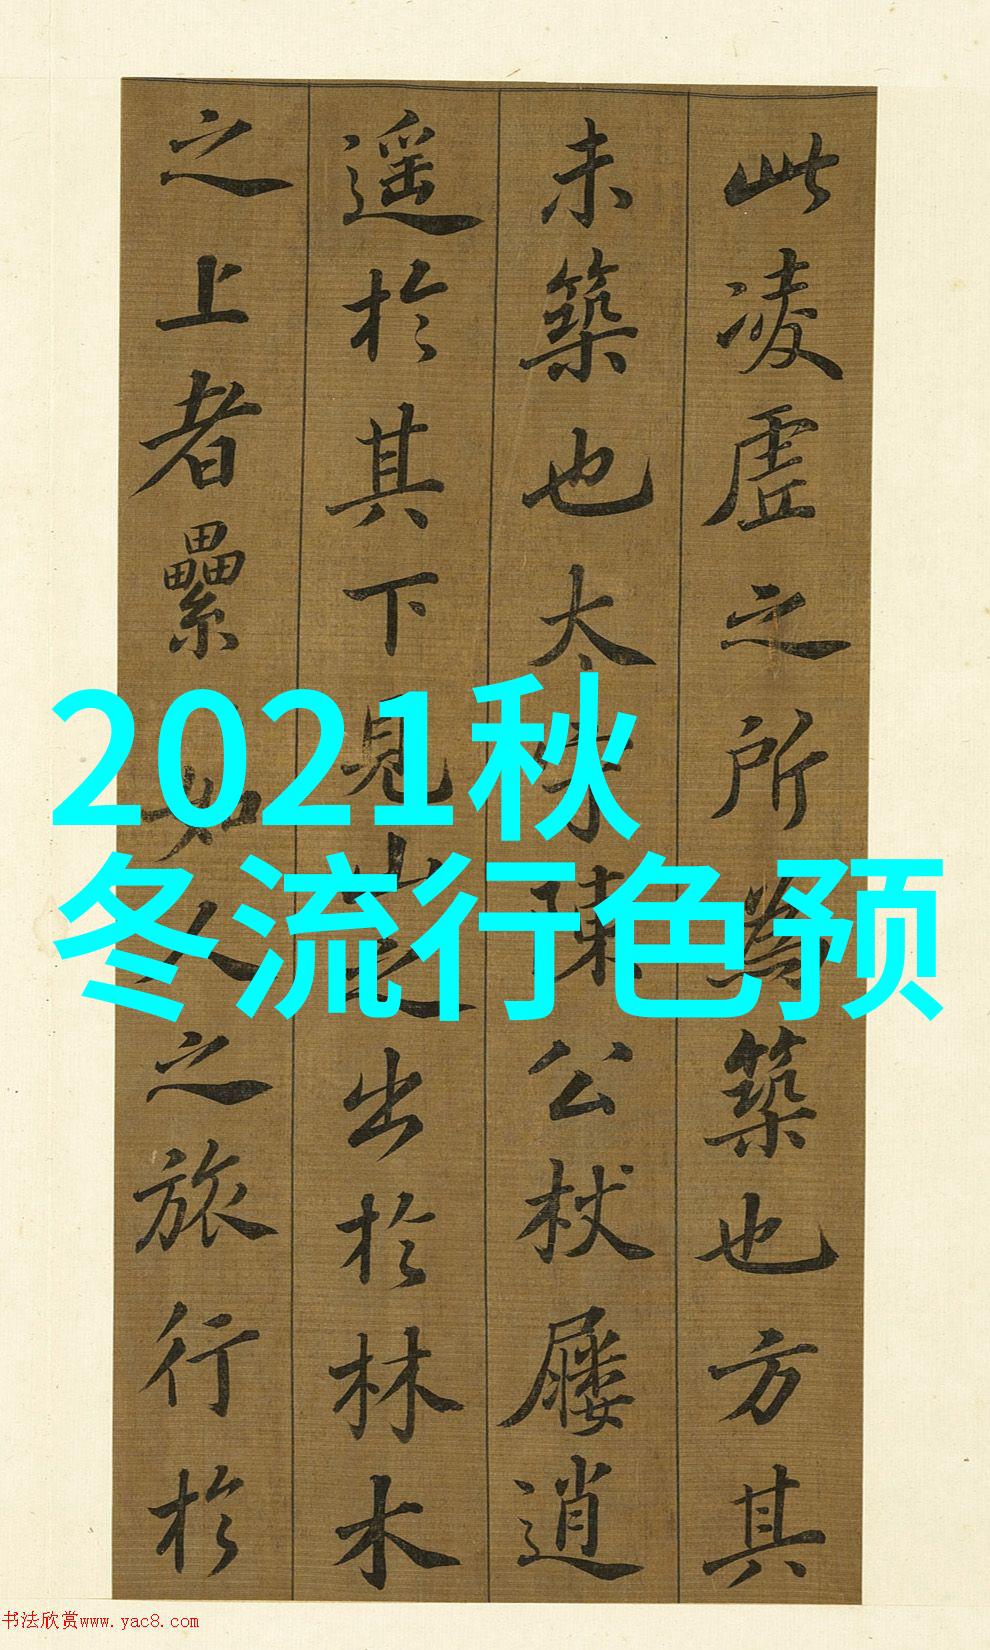 此凌虗之所為築也方其
未築也太守陳公杖屨逍
遥於其下見山之出於林木
之上者纍纍如人之旅行於
2021秋
冬流行色预
书法欣赏www.yac8.com